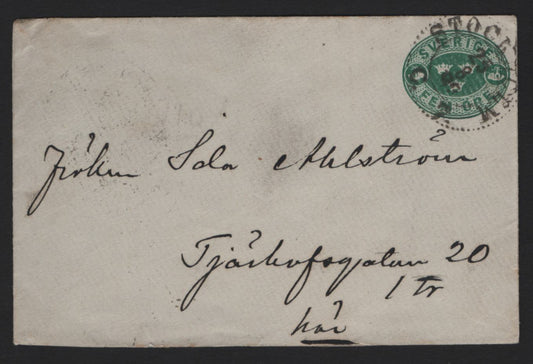 STOCKHOLM
SVERIGE
FEM ÖRE
Fröken Ida Ahlström
Tjärhofsgatan 20
1 tr
här